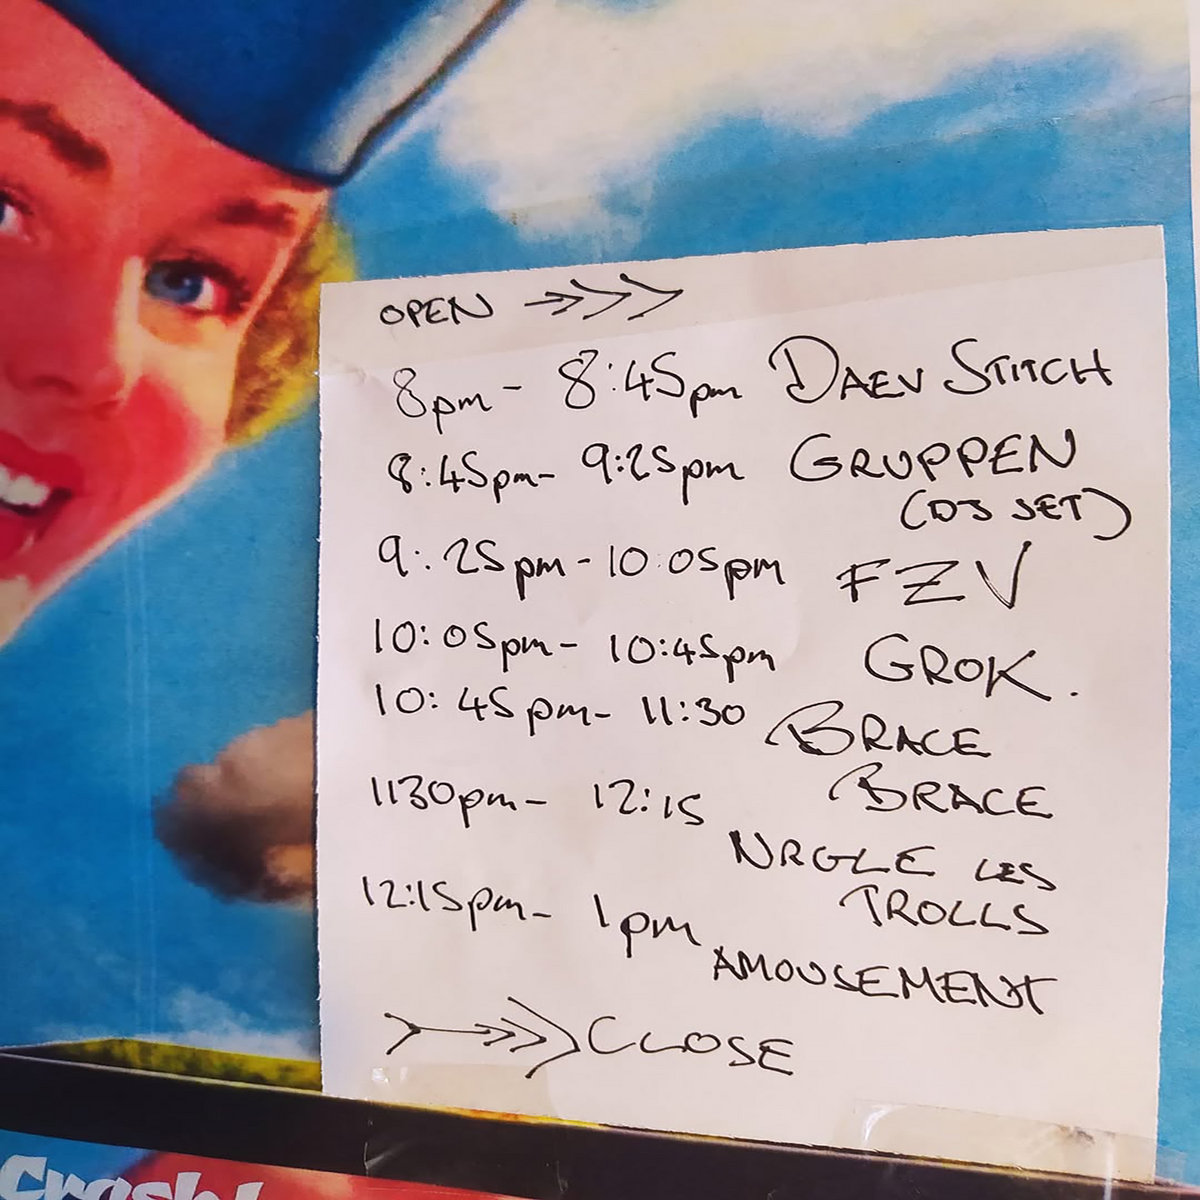 OPEN
8pm - 8:45pm DAEV STITCH
8:45pm- 9:25pm GRUPPEN
(DJ SET)
9:25pm-10:05pm FZV
10:05pm- 10:45pm GROK.
10:45pm- 11:30 BRACE
BRACE
1130pm- 12:15
NRGLE LES
TROLLS
12:15pm- 1pm
AMOUSEMENT
CLOSE
Crash!